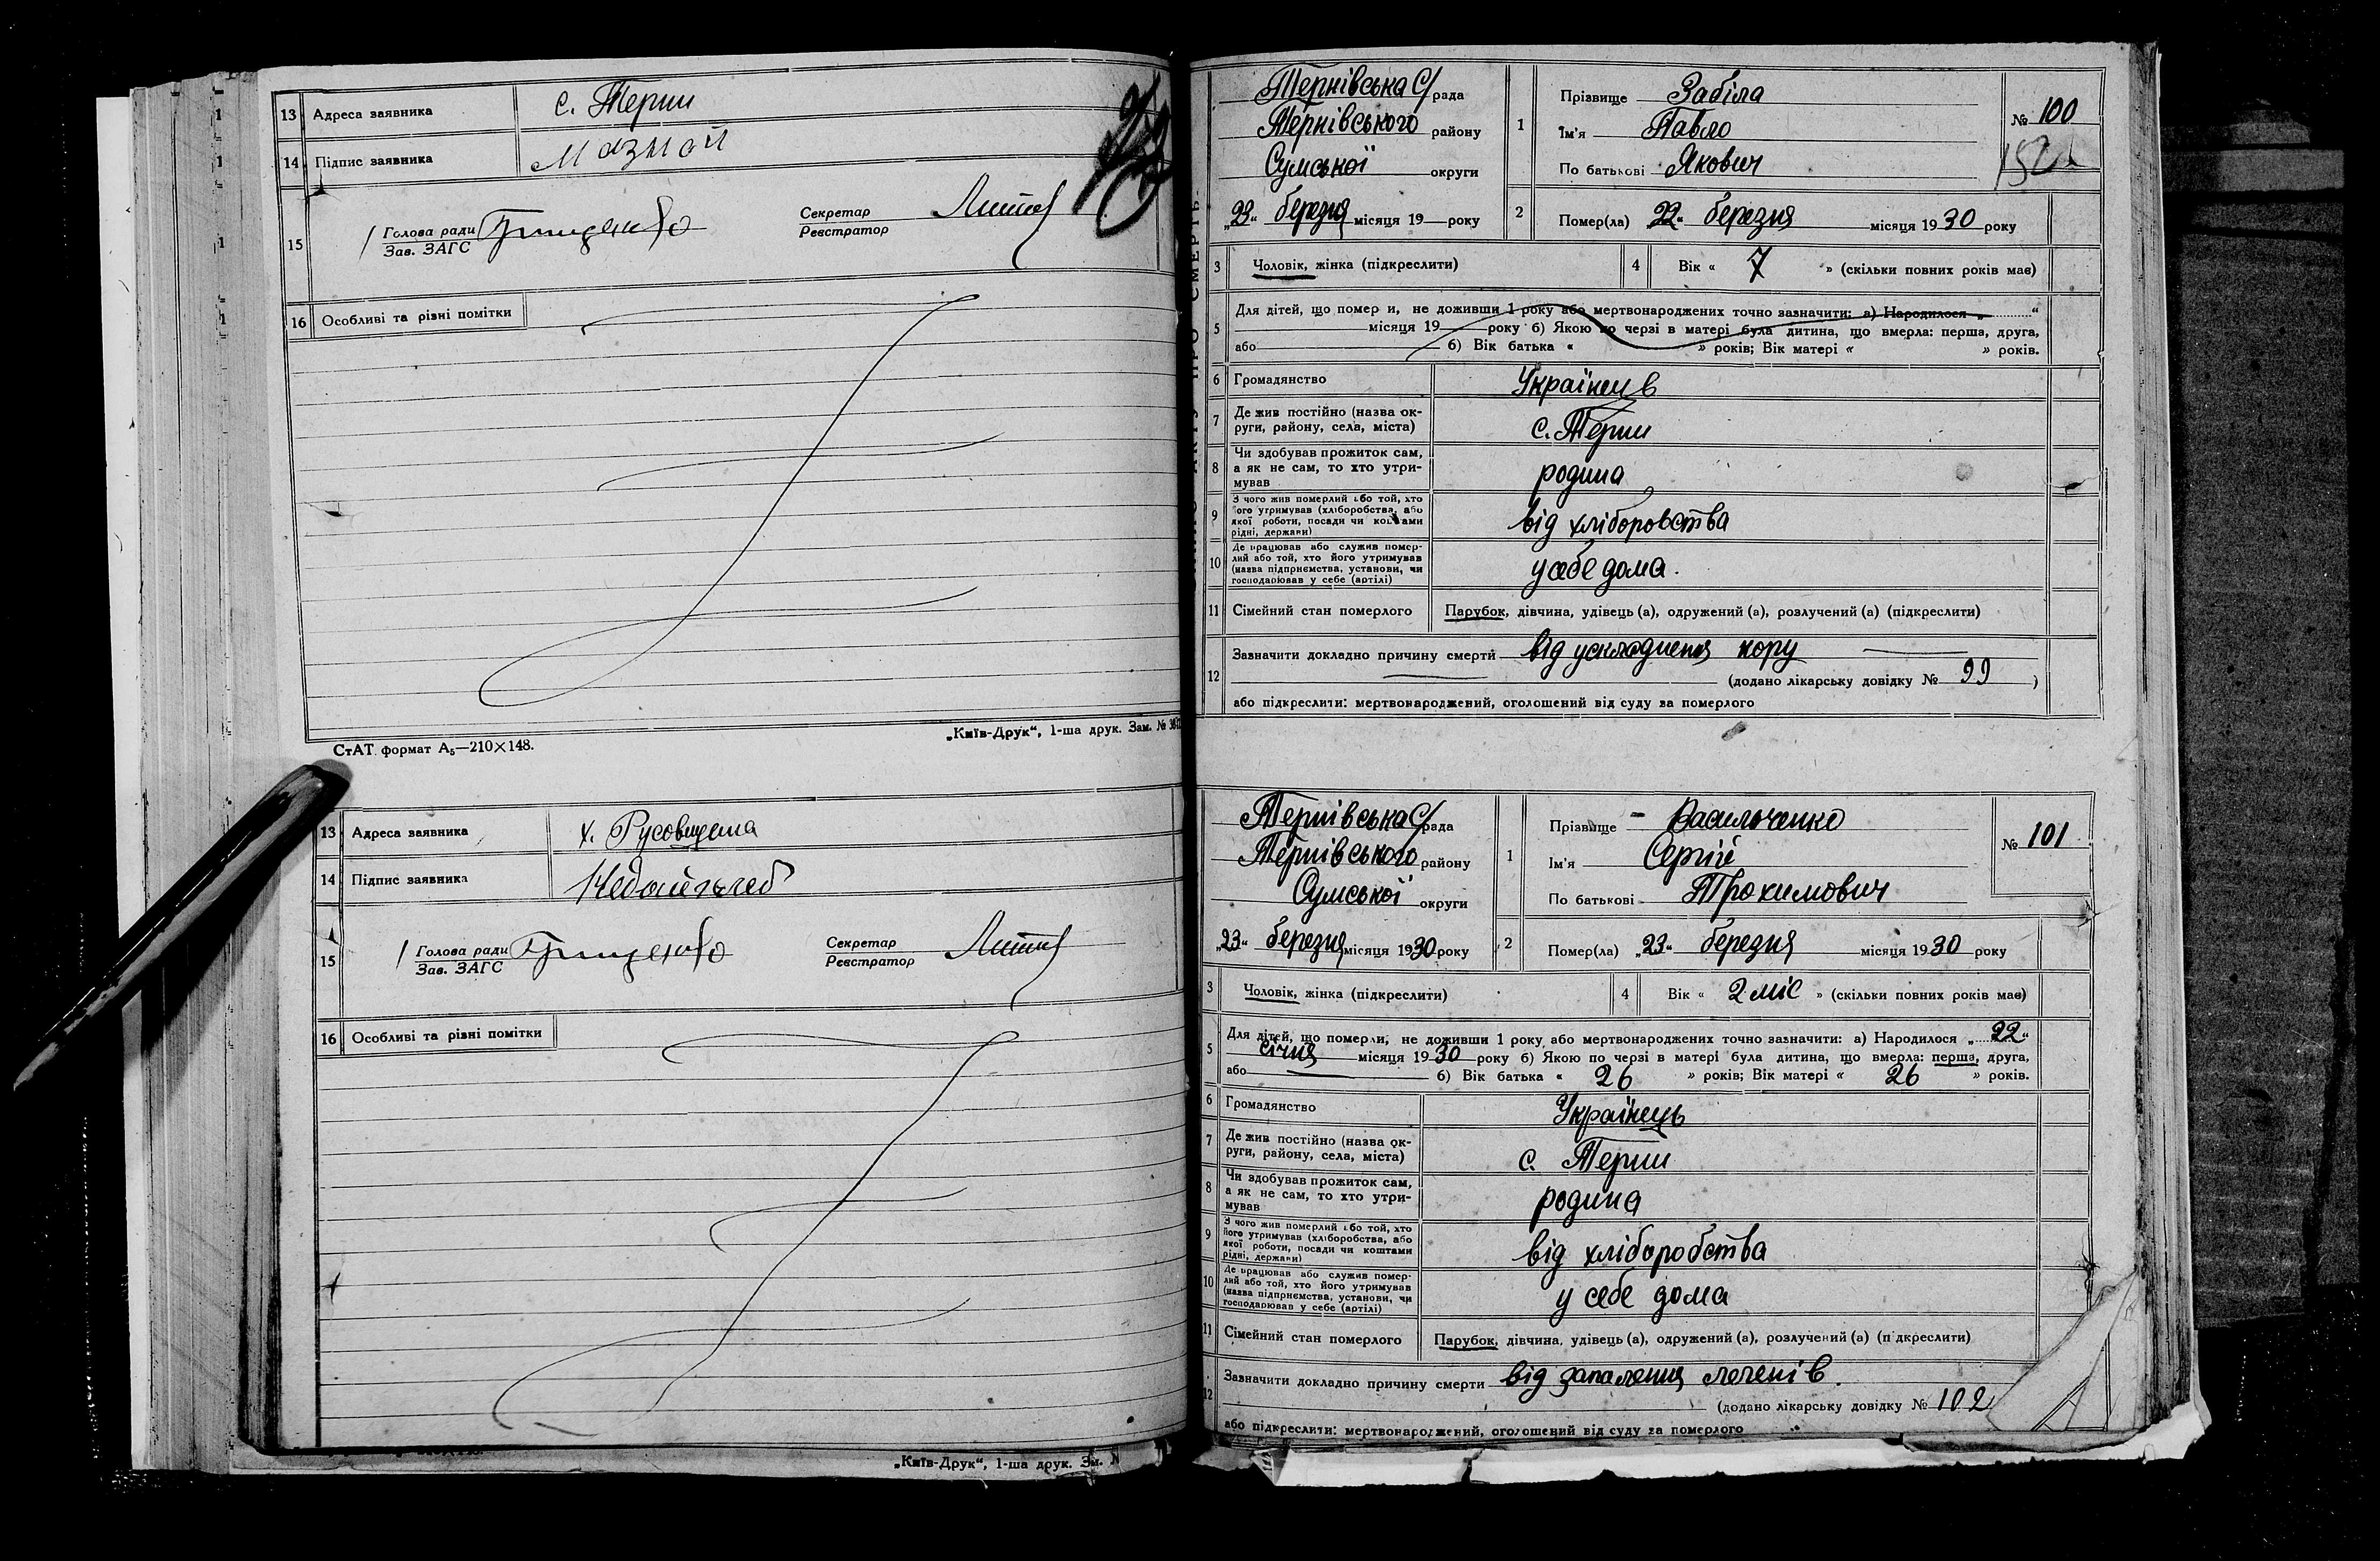 13 Адреса заявника с. Терни
14 Підпис заявника Мазной
15 Голова ради Грищенко Секретар
Зав. ЗАГС Реєстратор
16 Особливі та різні помітки
СтАТ формат А₅—210×148. „Київ-Друк“, 1-ша друк. Зам. №
13 Адреса заявника х.
14 Підпис заявника
15 Голова ради Грищенко Секретар
Зав. ЗАГС Реєстратор
16 Особливі та різні помітки
„Київ-Друк“, 1-ша друк.
Тернівська С/рада
Тернівського району
Сумської округи
„23“ березня місяця 19 року
1 Прізвище Забіла
Ім'я Павло
По батькові Якович
№ 100
2 Помер(ла) 22“ березня місяця 1930 року
3 Чоловік, жінка (підкреслити) 4 Вік « 7 » (скільки повних років має)
5 Для дітей, що помер и, не доживши 1 року або мертвонароджених точно зазначити: а) Народилося „ “
місяця 19 року б) Якою по черзі в матері була дитина, що вмерла: перша, друга,
або б) Вік батька « » років; Вік матері « » років.
6 Громадянство Українець
7 Де жив постійно (назва ок-
руги, району, села, міста) с. Терни
8 Чи здобував прожиток сам,
а як не сам, то хто утри-
мував родина
9 З чого жив померлий або той, хто
його утримував (хліборобства, або
якої роботи, посади чи коштами
рідні, держави) від хліборобства
10 Де працював або служив помер-
лий або той, хто його утримував
(назва підприємства, установи, чи
господарював у себе (артілі) у себе дома.
11 Сімейний стан померлого Парубок, дівчина, удівець (а), одружений (а), розлучений (а) (підкреслити)
12 Зазначити докладно причину смерти від ускладнення кору
(додано лікарську довідку № 99 )
або підкреслити: мертвонароджений, оголошений від суду за померлого
Тернівська С/рада
Тернівського району
Сумської округи
„23“ березня місяця 1930 року
1 Прізвище Васильченко
Ім'я Сергій
По батькові Трохимович
№ 101
2 Помер(ла) „23“ березня місяця 1930 року
3 Чоловік, жінка (підкреслити) 4 Вік « 2 міс » (скільки повних років має)
5 Для дітей, що померли, не доживши 1 року або мертвонароджених точно зазначити: а) Народилося „22“
січня місяця 1930 року б) Якою по черзі в матері була дитина, що вмерла: перша, друга,
або б) Вік батька « 26 » років; Вік матері « 26 » років.
6 Громадянство Українець
7 Де жив постійно (назва ок-
руги, району, села, міста) с. Терни
8 Чи здобував прожиток сам,
а як не сам, то хто утри-
мував родина
9 З чого жив померлий або той, хто
його утримував (хліборобства, або
якої роботи, посади чи коштами
рідні, держави) від хліборобства
10 Де працював або служив помер-
лий або той, хто його утримував
(назва підприємства, установи, чи
господарював у себе (артілі) у себе дома
11 Сімейний стан померлого Парубок, дівчина, удівець (а), одружений (а), розлучений (а) (підкреслити)
12 Зазначити докладно причину смерти від запалення легенів.
(додано лікарську довідку № 102
або підкреслити: мертвонароджений, оголошений від суду за померлого